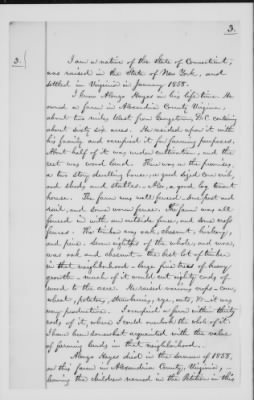 3.
3.
I am a native of the State of Connecticut,
was raised in the State of New York, and
settled in Virginia in January 1858.
I knew Alonzo Hayes in his life time. He
owned a farm in Alexandria County Virginia,
about two miles West from Georgetown, D.C. containing
about sixty six acres. He resided upon it with
his family and occupied it for farming purposes.
About half of it was under cultivation, and the
rest was wood land. There was on the premises,
a two story dwelling house, a good sized corn crib,
and sheds and stables. Also, a good log tenant
house. The farm was well fenced. Some post and
rail, and some worm fence. The farm was all
fenced in with an outside fence, and some cross
fences. The timber was oak, chesnut, hickory,
and pine. Some eighths of the whole, and more,
was oak and chesnut - the best lot of timber
in that neighborhood - large fine trees of heavy
growth - much of it would cut eighty cords of
wood to the acre. He raised various crops - corn,
wheat, potatoes, strawberries, rye, oats, & - it was
very productive. I occupied a farm within thirty
rods of it, where I could overlook the whole of it.
I have been somewhat acquainted with the value
of farming lands in that neighborhood.
Alonzo Hayes died in the summer of 1858,
on this farm in Alexandria County, Virginia,
leaving the children named in the Petition in this